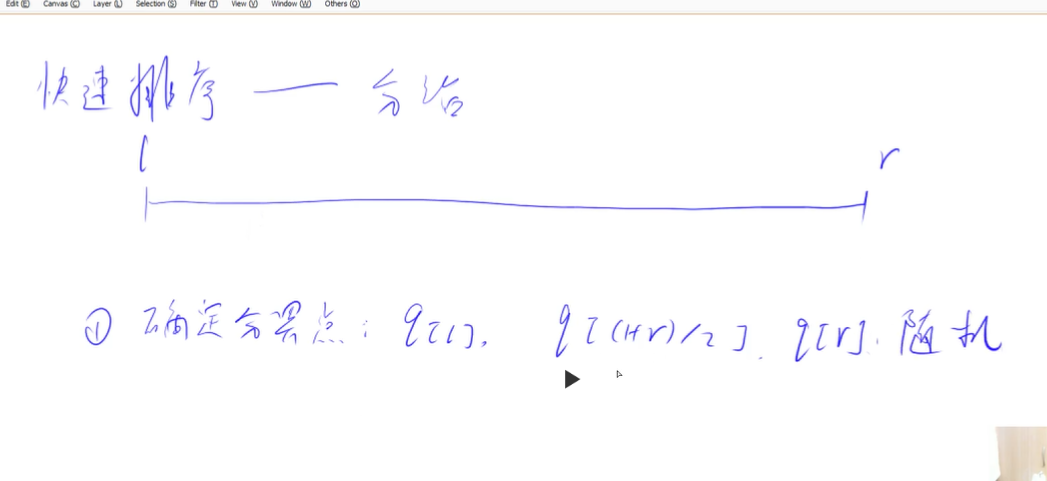 Edit (E) Canvas (C) Layer (L) Selection (S) Filter (T) View (V) Window (W) Others (O)
快速排序 —— 分治
l r
① 确定分界点: q[l], q[(l+r)/2], q[r], 随机